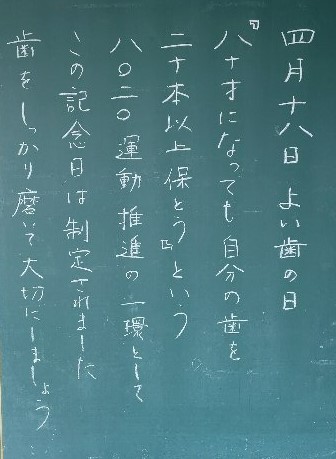 四月十八日 よい歯の日
『八十才になっても自分の歯を
二十本以上保とう』という
八〇二〇運動推進の一環として
この記念日は制定されました
歯をしっかり磨いて大切にしましょう